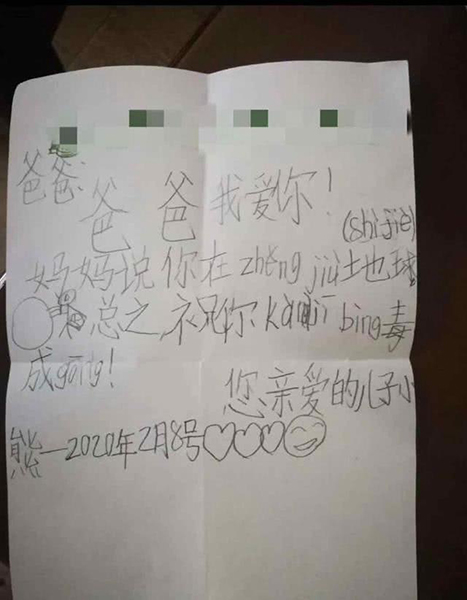 爸爸:
爸爸我爱你!
(shì jiè)
妈妈说你在zhěng jiù地球
总之,祝你kàng jī bìng毒
成gōng!
您亲爱的儿子小
熊—2020年2月8号